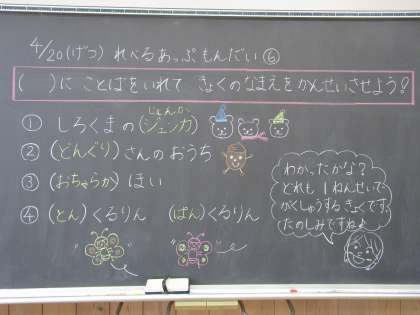 4/20(げつ) れべるあっぷもんだい⑥
( )に ことばをいれて きょくのなまえをかんせいさせよう!
① しろくまの(ジェンカ)
じぇんか
② (どんぐり)さんのおうち
③ (おちゃらか)ほい
④ (とん)くるりん (ぱん)くるりん
わかったかな?
どれも1ねんせいで
がくしゅうするきょくです。
たのしみですね♪